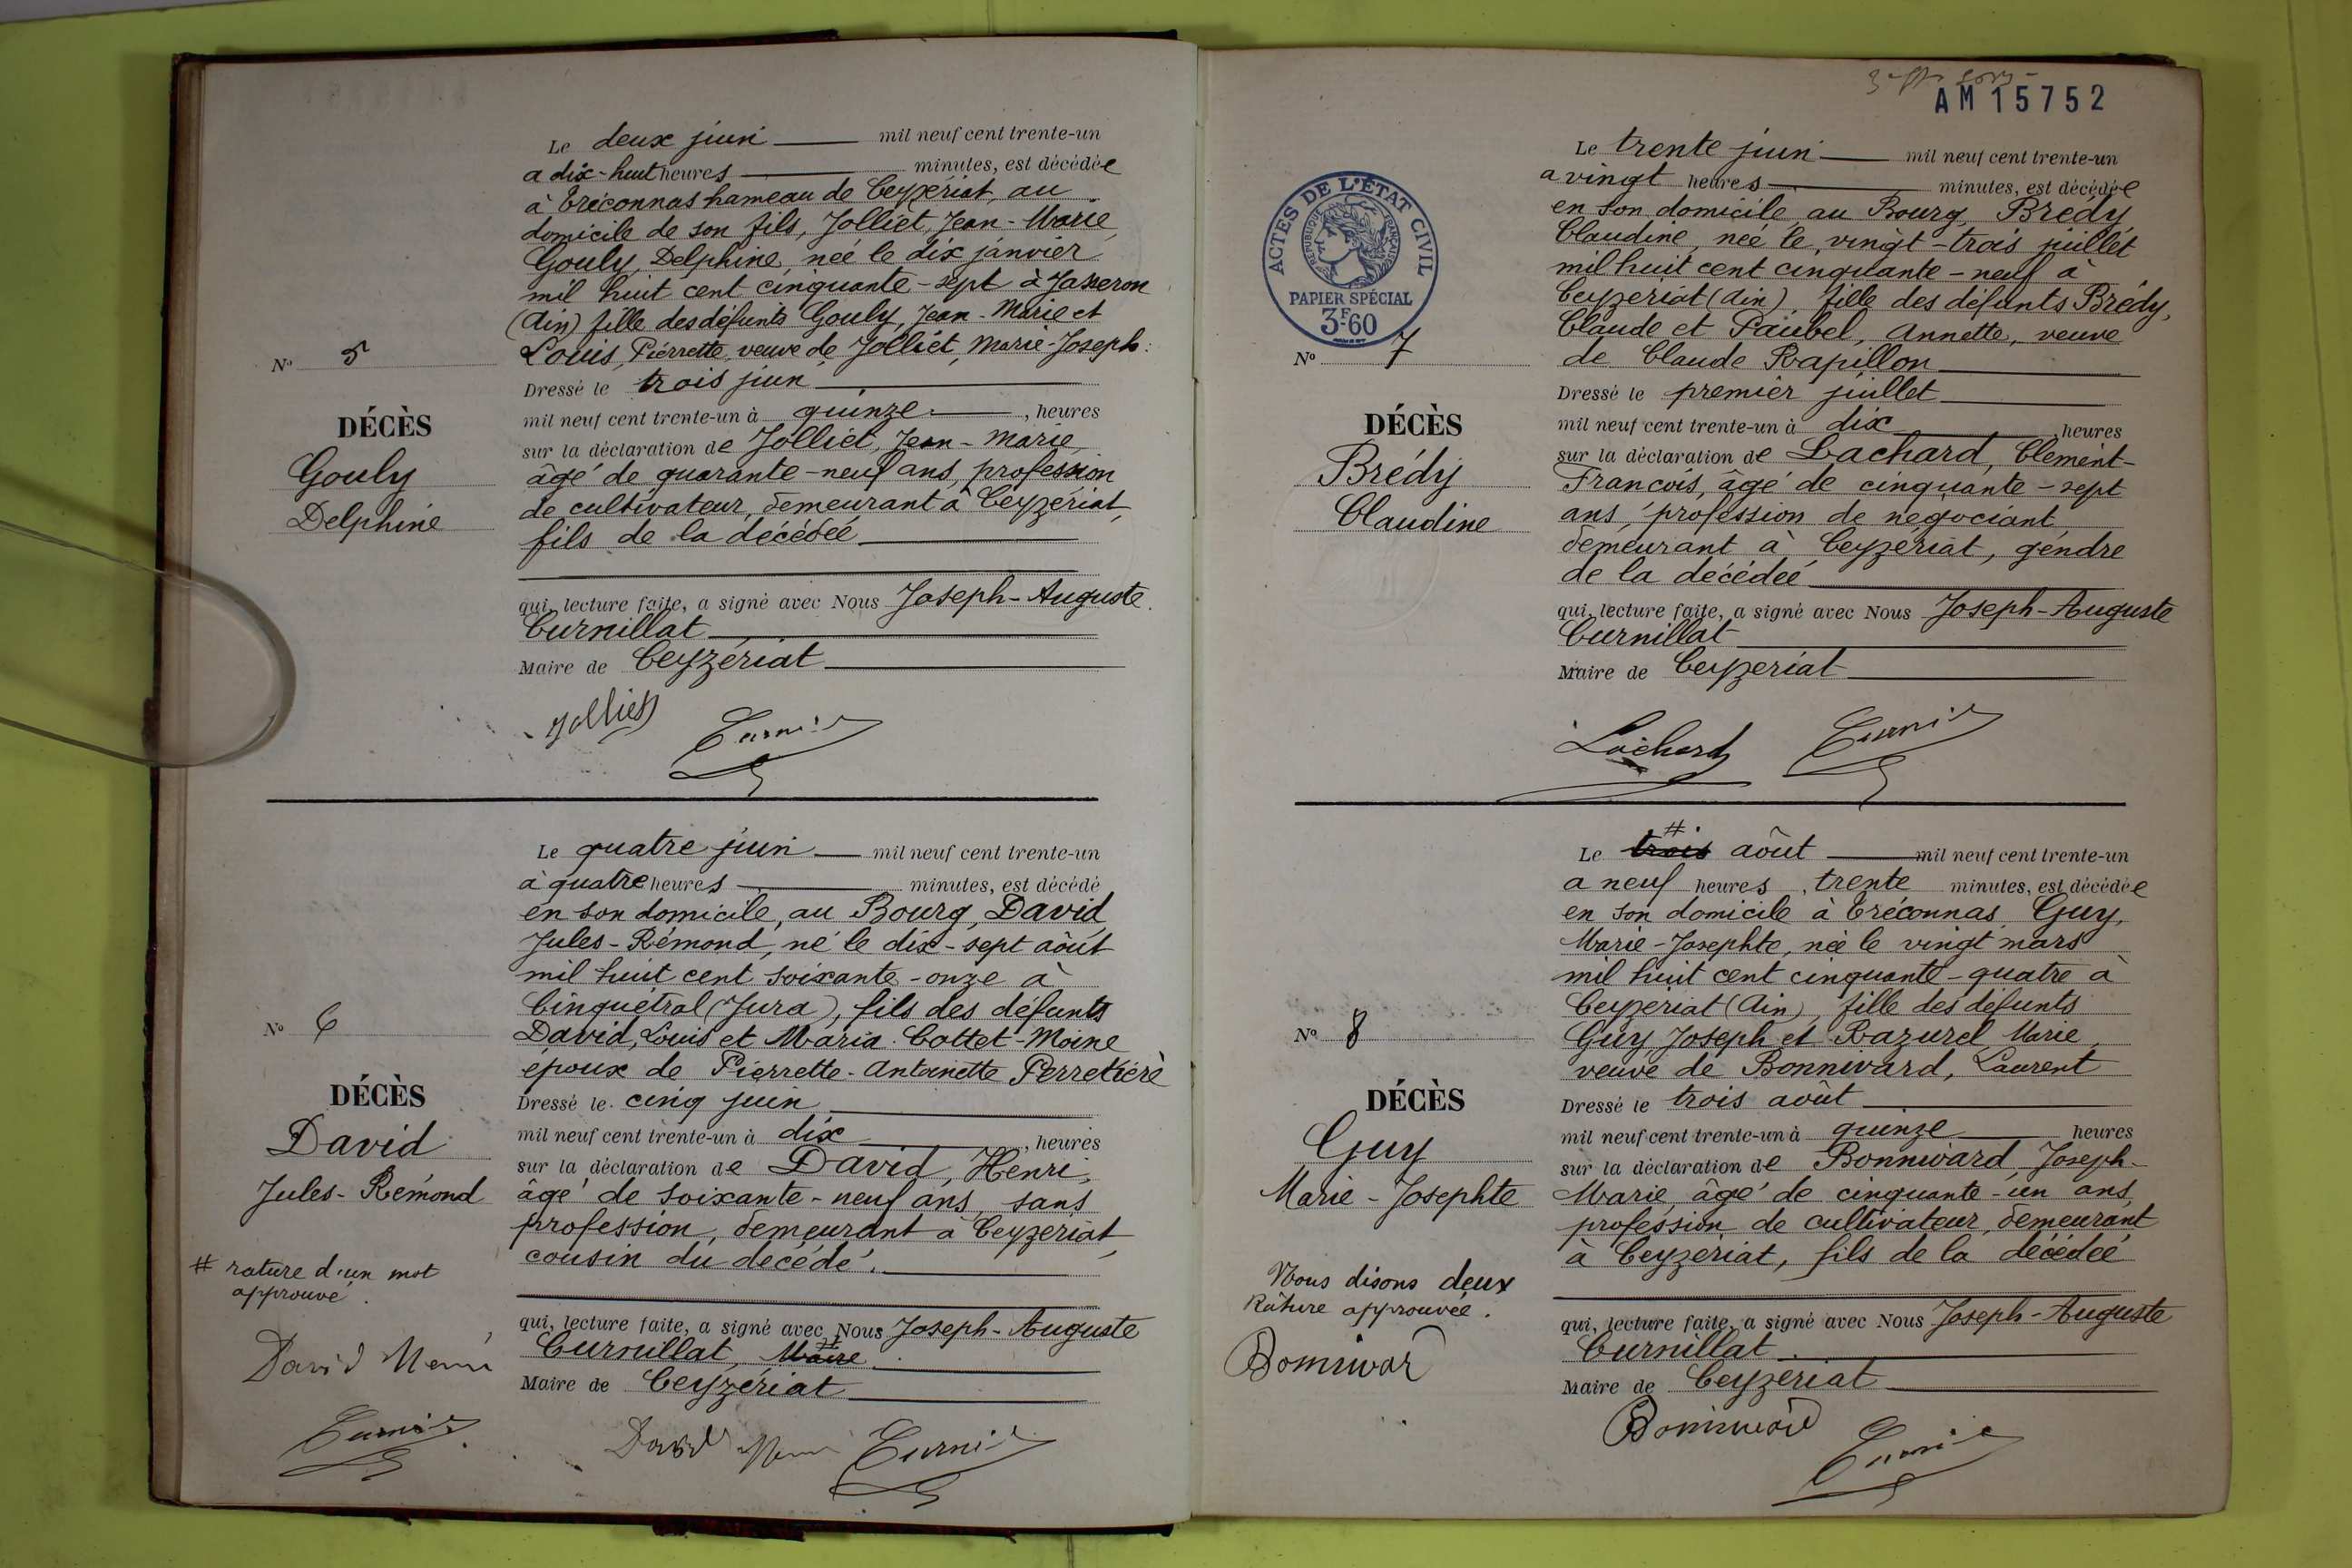 Le deux juin mil neuf cent trente-un
a dix-huit heures minutes, est décédée
à Tréconnas hameau de Ceyzériat, au
domicile de son fils, Jolliet, Jean-Marie,
Gouly, Delphine, née le dix janvier
mil huit cent cinquante-sept à Jasseron
(Ain) fille des défunts Gouly, Jean-Marie et
Louis, Pierrette, veuve de Jolliet, Marie-Joseph.
N° 5
Dressé le trois juin
mil neuf cent trente-un à quinze, heures
DÉCÈS
Gouly
Delphine
sur la déclaration de Jolliet, Jean-Marie,
âgé de quarante-neuf ans, profession
de cultivateur, demeurant à Ceyzériat,
fils de la décédée
qui, lecture faite, a signé avec Nous Joseph-Auguste
Curnillat
Maire de Ceyzériat
Jolliet
Le quatre juin mil neuf cent trente-un
à quatre heures minutes, est décédé
en son domicile, au Bourg, David,
Jules-Rémond, né le dix-sept août
mil huit cent soixante-onze à
Cinquétral (Jura), fils des défunts
David, Louis et Maria Cottet-Moine
époux de Pierrette-Antoinette Perretière
N° 6
DÉCÈS
David
Jules-Rémond
Dressé le cinq juin
mil neuf cent trente-un à dix, heures
sur la déclaration de David, Henri,
âgé de soixante-neuf ans, sans
profession, demeurant à Ceyzériat,
cousin du décédé.
# rature d'un mot
approuvé.
David Henri
qui, lecture faite, a signé avec Nous Joseph-Auguste
Curnillat, # Maire
Maire de Ceyzériat
David Henri
AM 15752
ACTES DE L'ÉTAT CIVIL
RÉPUBLIQUE FRANÇAISE
PAPIER SPÉCIAL
3F.60
Le trente juin mil neuf cent trente-un
a vingt heures minutes, est décédée
en son domicile au Bourg, Brédy,
Claudine, née le vingt-trois juillet
mil huit cent cinquante-neuf à
Ceyzériat (Ain), fille des défunts Brédy,
Claude et Paubel, Annette, veuve
de Claude Rapillon
N° 7
DÉCÈS
Brédy
Claudine
Dressé le premier juillet
mil neuf cent trente-un à dix, heures
sur la déclaration de Lachard, Clément-
François, âgé de cinquante-sept
ans, profession de négociant
demeurant à Ceyzériat, gendre
de la décédée
qui, lecture faite, a signé avec Nous Joseph-Auguste
Curnillat
Maire de Ceyzériat
Lachard
#
Le trois août mil neuf cent trente-un
a neuf heures, trente minutes, est décédée
en son domicile à Tréconnas, Guy,
Marie-Josephte, née le vingt mars
mil huit cent cinquante-quatre à
Ceyzériat (Ain), fille des défunts
Guy Joseph et Razurel Marie,
veuve de Bonnivard, Laurent
N° 8
DÉCÈS
Guy
Marie-Josephte
Dressé le trois août
mil neuf cent trente-un à quinze heures
sur la déclaration de Bonnivard Joseph-
Marie, âgé de cinquante-un ans,
profession de cultivateur, demeurant
à Ceyzériat, fils de la décédée
Nous disons deux
Rature approuvée.
Bonnivar
qui, lecture faite, a signé avec Nous Joseph-Auguste
Curnillat
Maire de Ceyzériat